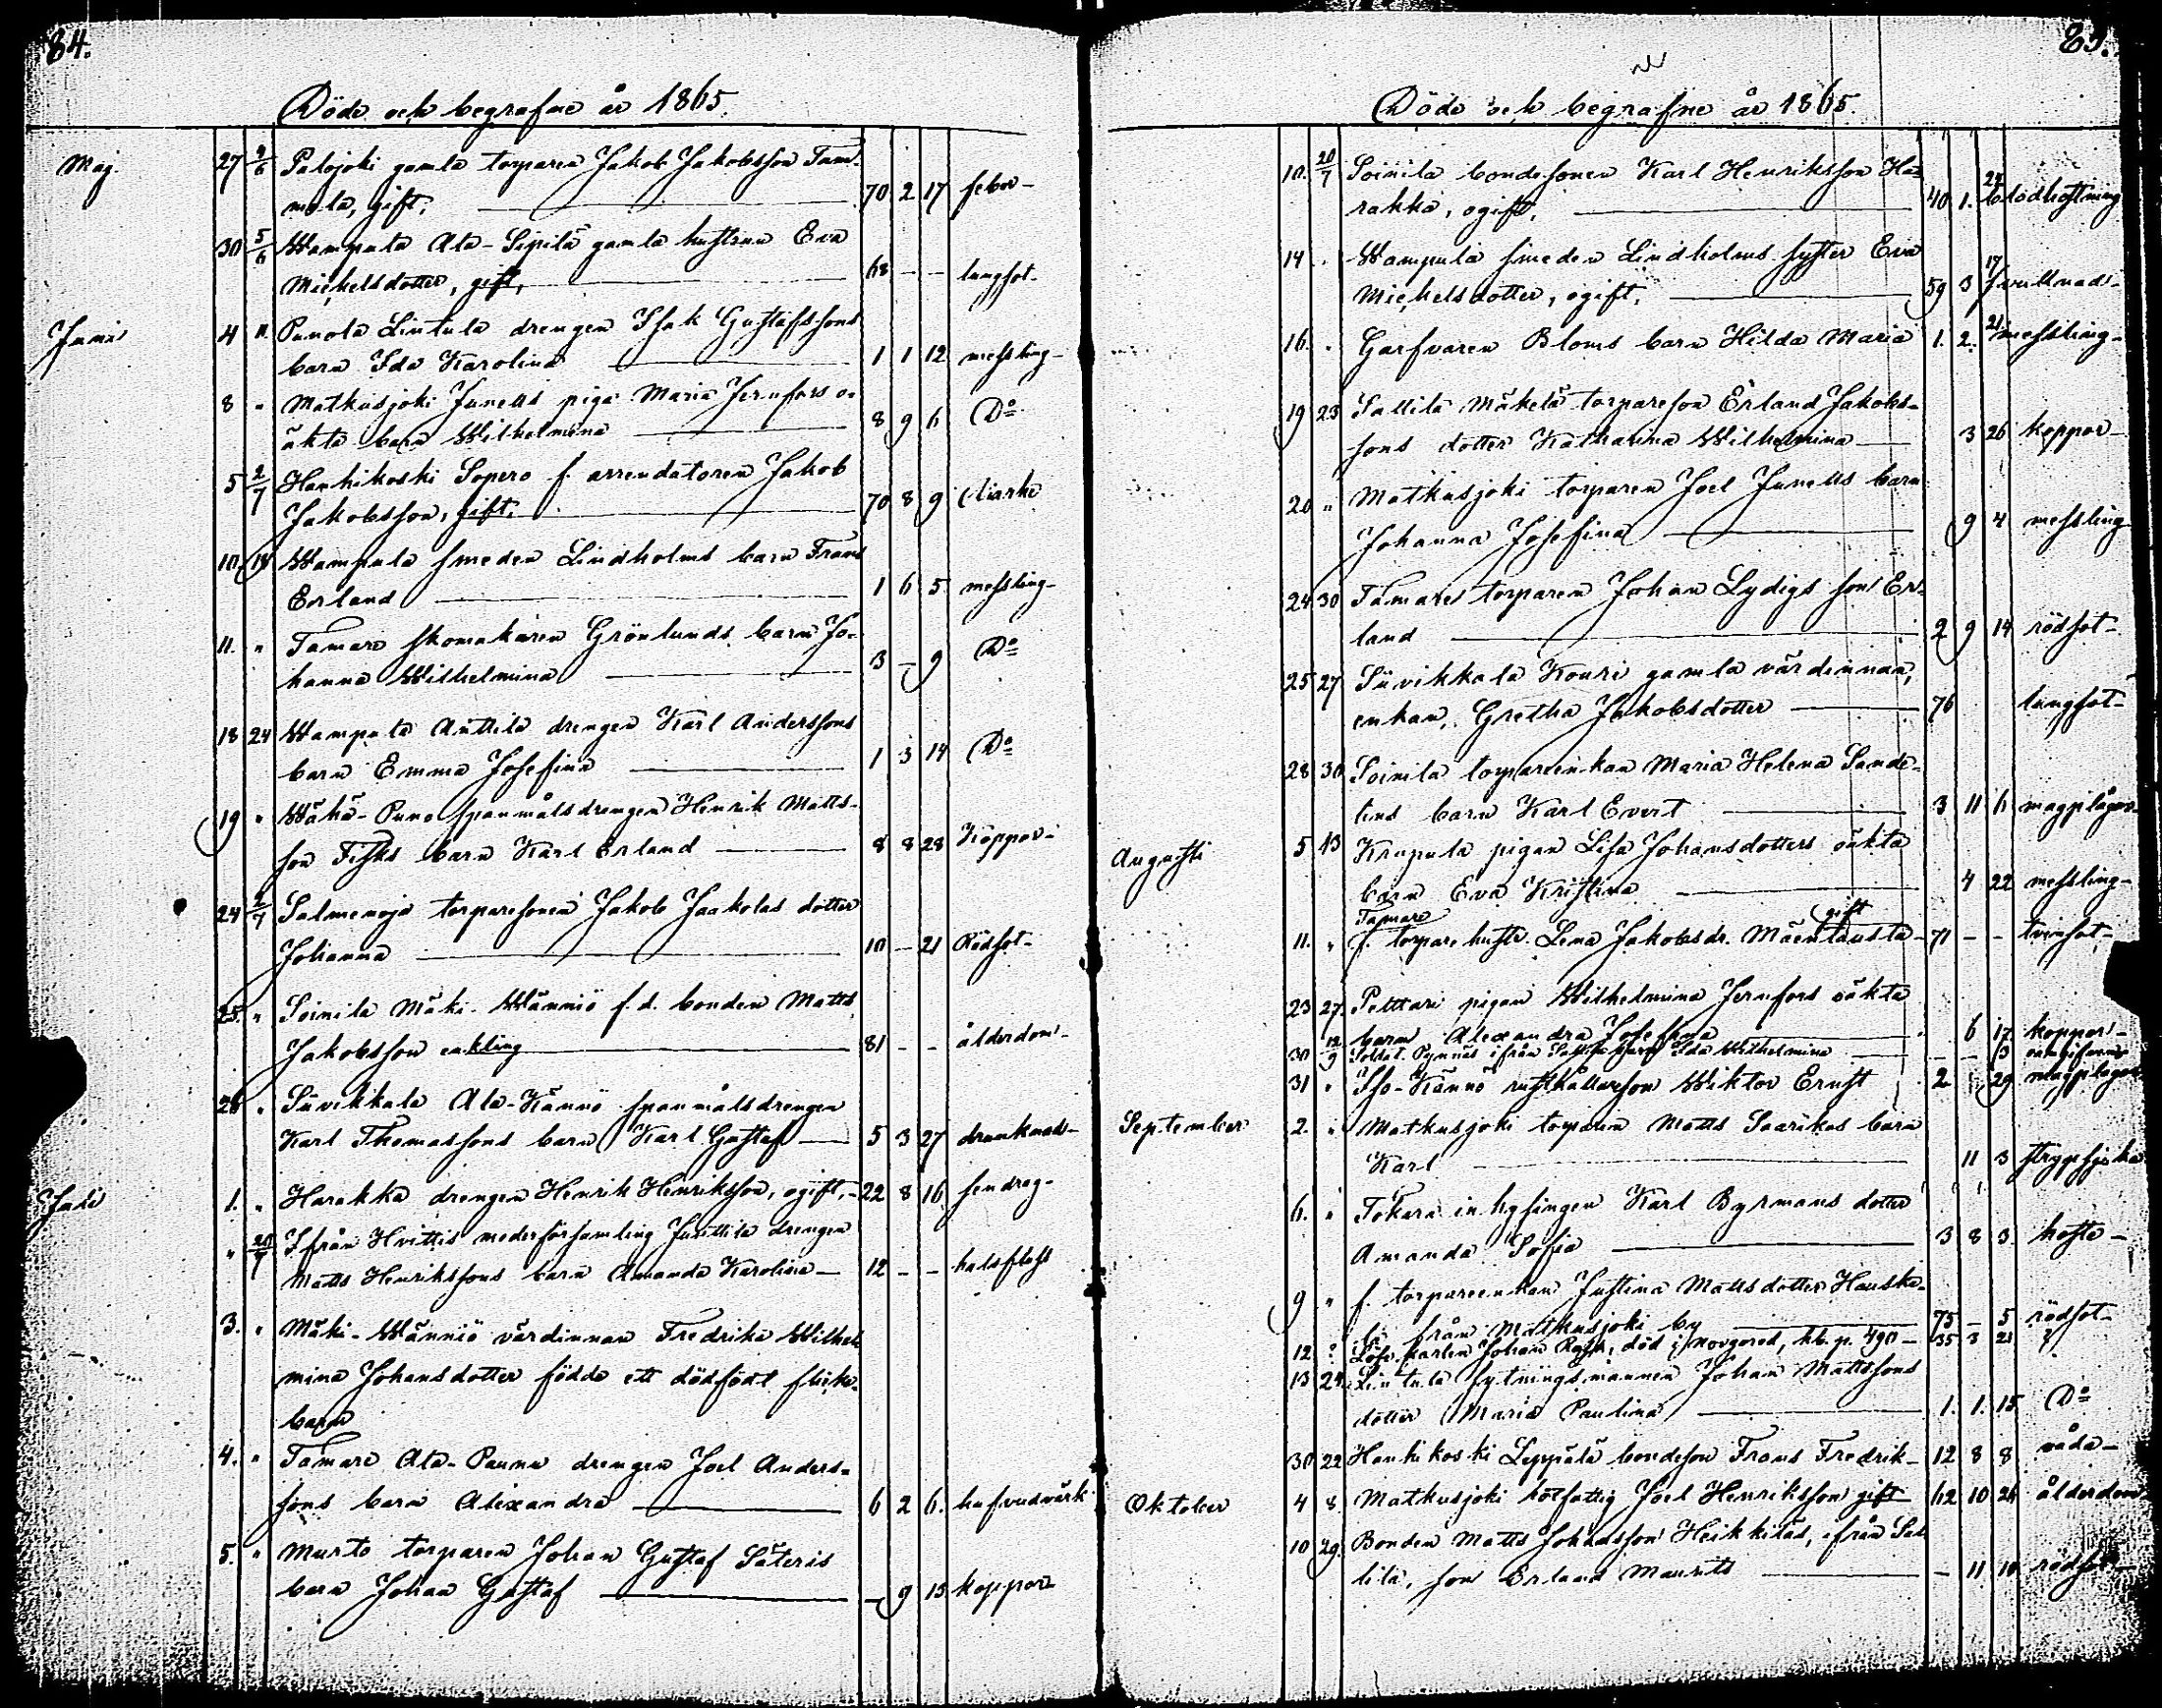 84.
Döde och begrafne år 1865.
Maj. 27 2/6 Palojoki gamla torparen Jakob Jakobsson Tam-
mela, gift. 70 2 17 feber
30 5/6 Wampula Ala-Sipilä gamla hustrun Eva
Michelsdotter, gift, 68 - - lungsot
Juni 4 11 Punola Lintula drengen Isak Gustafssons
barn Ida Karolina 1 1 12 messling
8 " Matkusjoki Junells piga Maria Jernfors o-
äkta barn Wilhelmina 8 9 6 Do
5 2/7 Hanhikoski Sopero f. arrendatoren Jakob
Jakobsson, gift. 70 8 9
10 Wampula smeden Lindholms barn Frans
Erland 1 6 5 messling
11. " Tamare skomakaren Grönlunds barn Jo-
hanna Wilhelmina 3 - 9 Do
18 24 Wampula Anttila drengen Karl Anderssons
barn Emma Josefina 1 3 14 Do
19 " Wähä-Puno spanmålsdrengen Henrik Matts-
son Fisks barn Karl Erland 8 8 28 Koppor
24 2/7 Salmenoja torparesonen Jakob Jaakolas dotter
Johanna 10 - 21 Rödsot
25. " Soinila Mäki-Wänniö f.d. bonden Matts
Jakobsson enkling 81 - - ålderdom
26 " Süvikkala Ala-Kännö spanmålsdrengen
Karl Thomassons barn Karl Gustaf 5 3 27 drunknad
Juli 1. " Harakka drengen Henrik Henriksson, ogift, 22 8 16 sendrag
" 20/7 Ifrån Hvittis moderförsamling Junttila drengen
Matts Henrikssons barn Amanda Karolina 12 - - halsfluss
3. " Mäki-Wänniö värdinnan Fredrika Wilhel-
mina Johansdotter födde ett dödfödt flicke-
barn
4. " Tamare Ala-Pauna drengen Joel Anders-
sons barn Alexandra 6 2 6. hufvudvärk
5. " Murto torparen Johan Gustaf Säteris
barn Johan Gustaf - 9 15 koppor
85.
Döde och begrafne år 1865.
10. 20/7 Soinila bondesonen Karl Henriksson Ha-
rakka, ogift. 40 1. 24 blodhostning
14 . Wampula smeden Lindholms syster Eva
Michelsdotter, ogift. 59 3 17 svullnad
16. " Garfvaren Bloms barn Hilda Maria 1. 2. 21 messling
19 23 Sallila Mäkelä torpareson Erland Jakobs-
sons dotter Katharina Wilhelmina 3 26 koppor
20 " Matkusjoki torparen Joel Junells barn
Johanna Josefina 9 4 messling
24 30 Tamare torparen Johan Lydigs son Er-
land 2 9 14 rödsot
25 27 Süvikkala Kouri gamla värdinnan,
enkan, Gretha Jakobsdotter 76 lungsot
28 30 Soinila torpareenkan Maria Helena Sande-
lins barn Karl Evert 3 11 6 magplågor
Augusti 5 13 Krupula pigan Lisa Johansdotters oäkta
barn Eva Kristina 4 22 messling
11. " Tamare f. torpare hustr. Lena Jakobsdr. Mäentausta gift 71 - - tvinsot
23 27. Pelttari pigan Wilhelmina Jernfors oäkta
barn Alexandra Josefina 6 17 koppor
30 12/9 Soldat. Pynnäs ifrån Sallila barn Ida Wilhelmina - - 3
31 " Iso-Kännö rusthållareson Wiktor Ernst 2 29 magplågor
September 2. " Matkusjoki torparen Matts Saarikas barn
Karl 11 3 strypsjuka
6. " Tokera inhysingen Karl Byrmans dotter
Amanda Sofia 3 8 3 hosta
9 " f. torpareenkan Justina Mattsdotter Hauska-
la från Matkusjoki by 75 - 5 rödsot
12 ? Löse karlen Johan Rask, död i Novgorod, kb. p. 490 35 3 21 ?
13 24. Lintula sytningsmannen Johan Mattssons
dotter Maria Paulina 1. 1. 15 Do
30 22 Hanhikoski Leppälä bondeson Frans Fredrik 12 8 8 våda
Oktober 4 8. Matkusjoki rotfattig Joel Henriksson gift 62 10 26 ålderdom
10 29. Bonden Matts Johansson Heikkiläs, ifrån Sal-
lila, son Erland Maurits - 11 10 rödsot